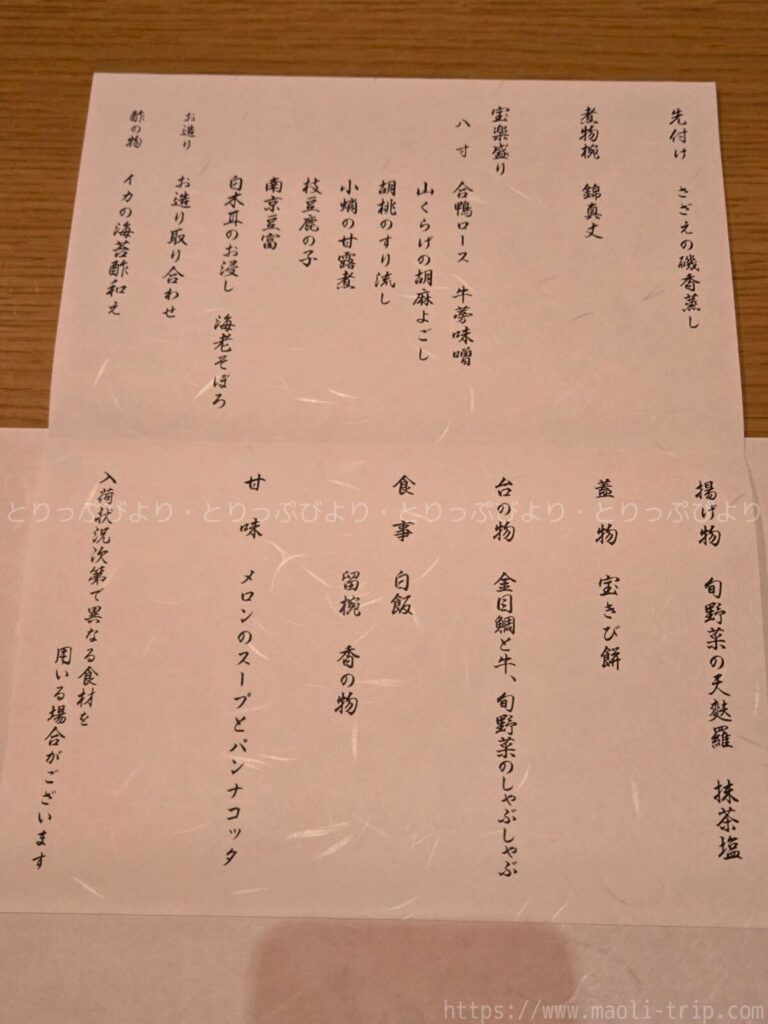 先付け　さざえの磯香蒸し
煮物椀　錦真丈
宝楽盛り
八寸　合鴨ロース　牛蒡味噌
山くらげの胡麻よごし
胡桃のすり流し
小蛸の甘露煮
枝豆鹿の子
南京豆富
白木耳のお浸し　海老そぼろ
お造り　お造り取り合わせ
酢の物　イカの海苔酢和え
揚げ物　旬野菜の天麩羅　抹茶塩
蓋物　宝きび餅
台の物　金目鯛と牛、旬野菜のしゃぶしゃぶ
食事　白飯
留椀　香の物
甘味　メロンのスープとパンナコッタ
入荷状況次第で異なる食材を
用いる場合がございます
とりっぷびより・とりっぷびより・とりっぷびより・とりっぷびより
https://www.maoli-trip.com